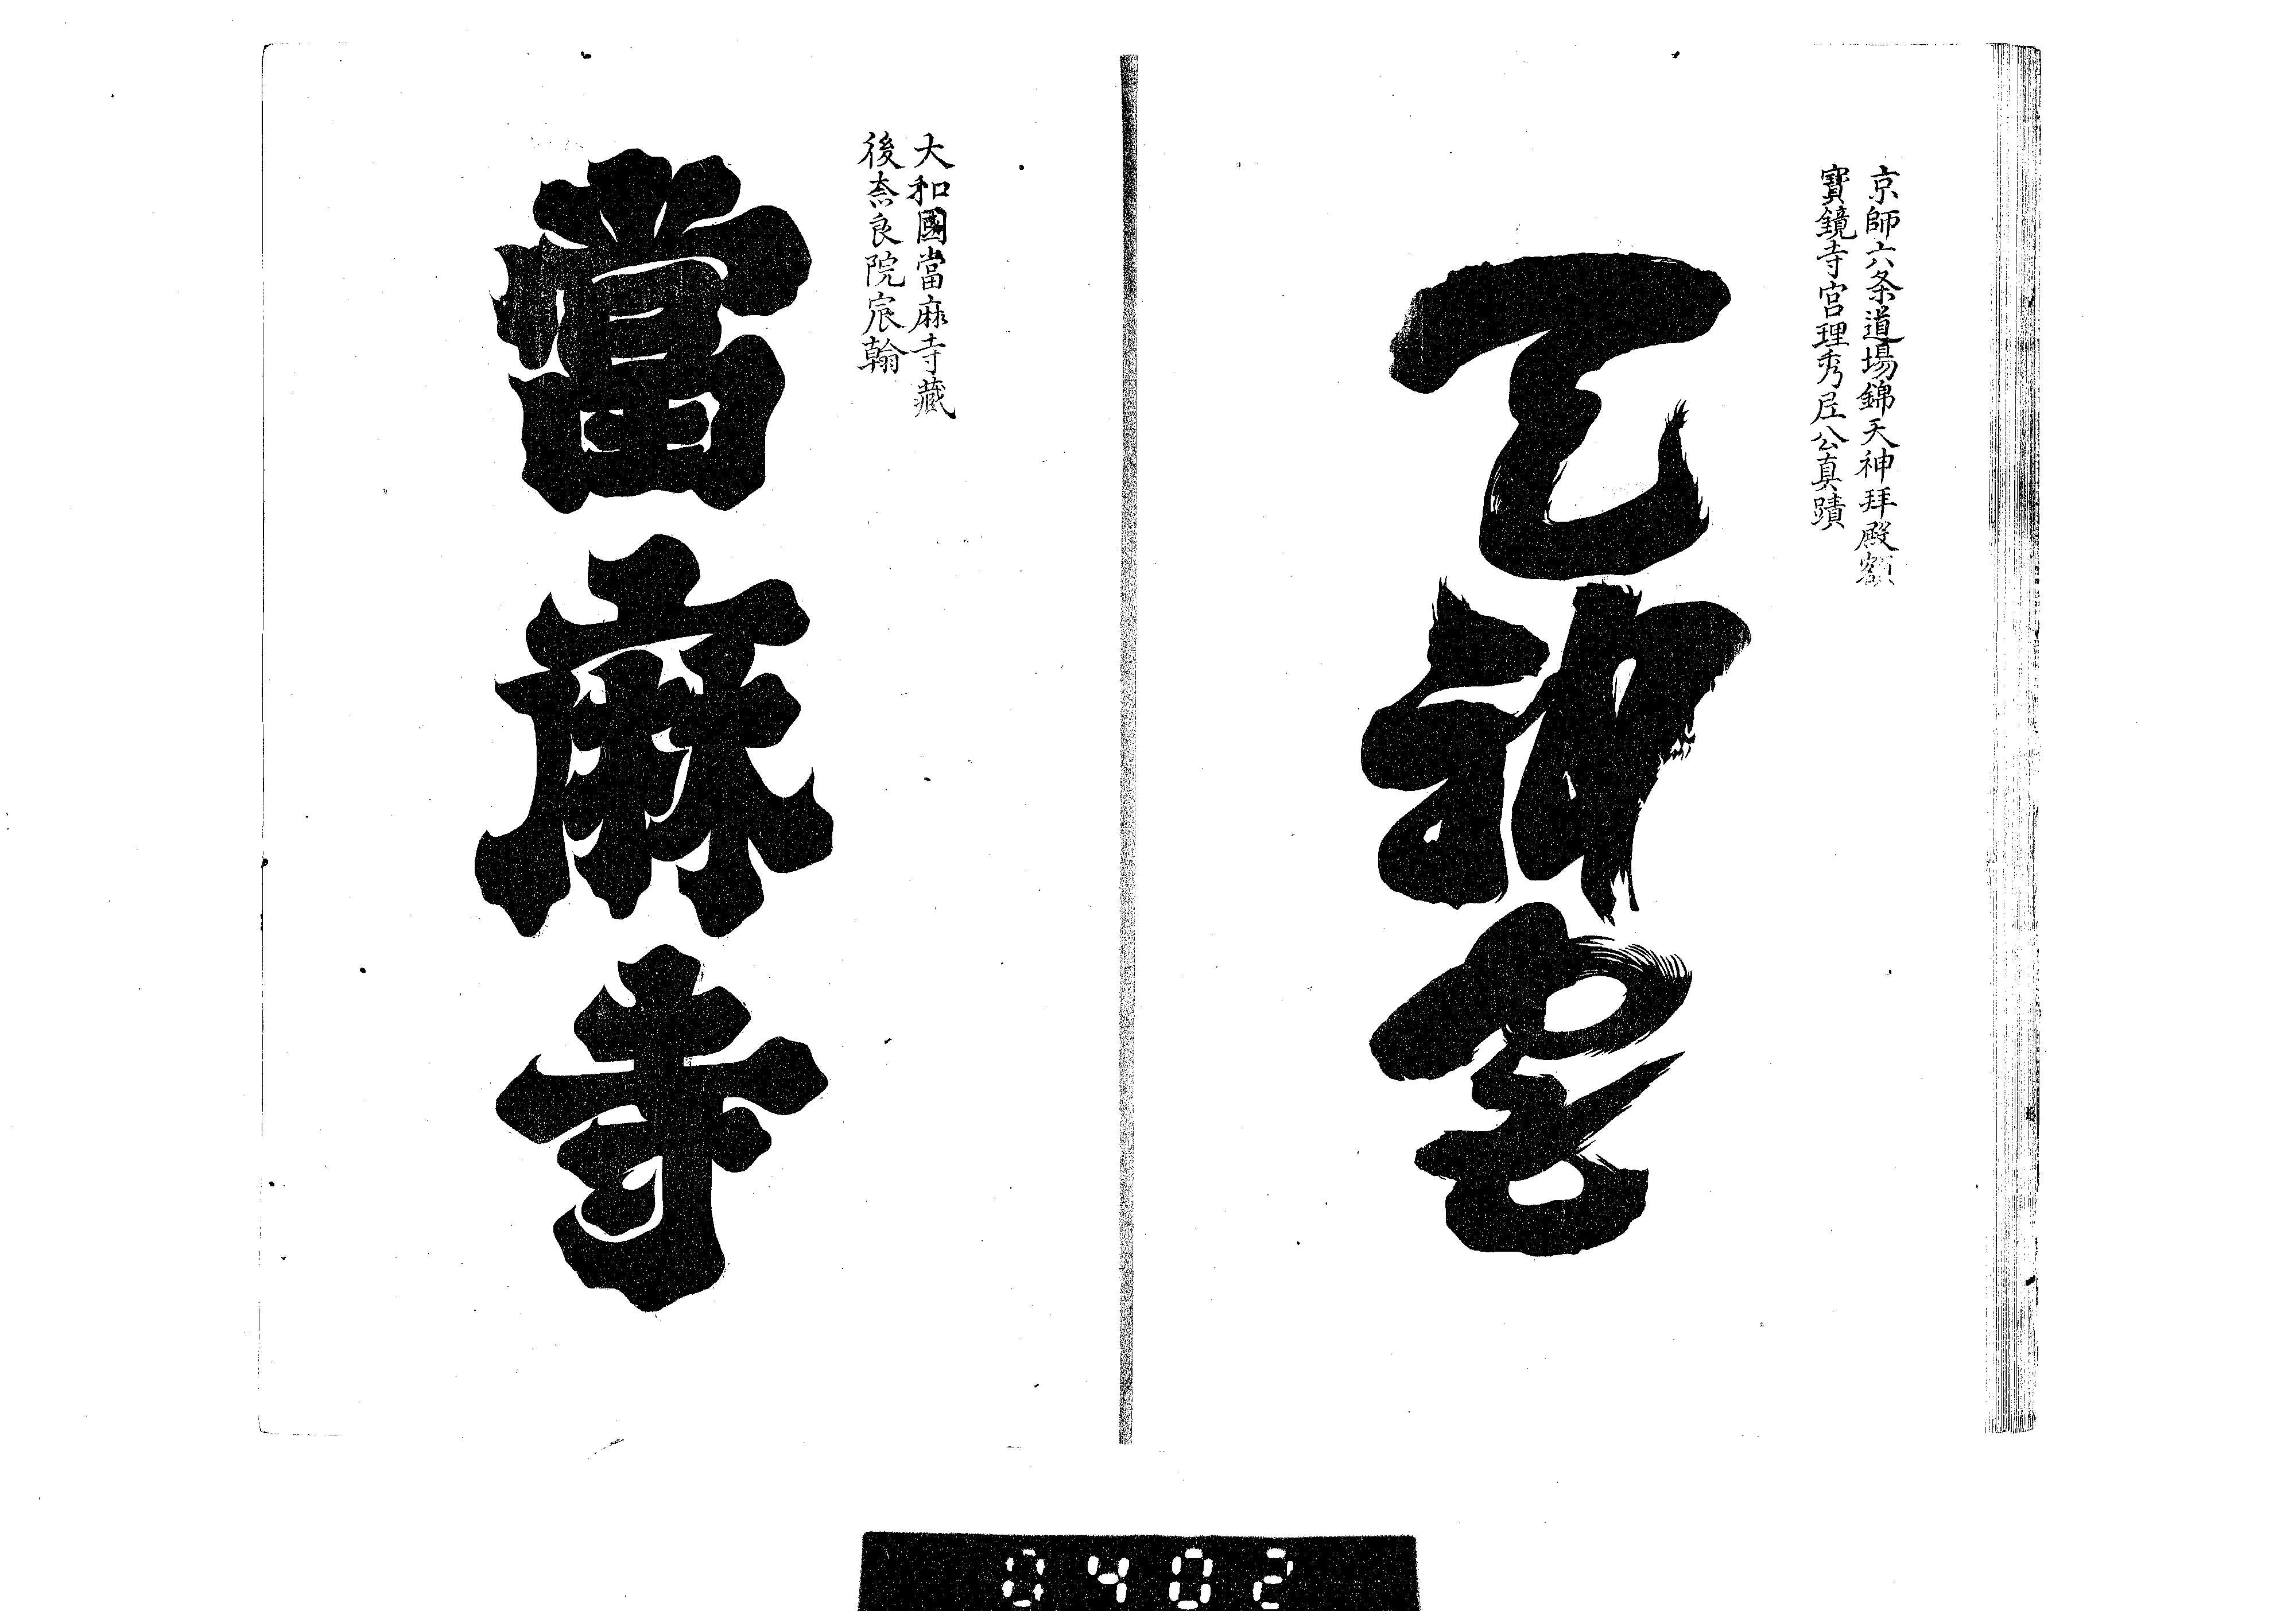 京師六条道場錦天神拜殿額
寶鏡寺宮理秀尼公真蹟
天神宮
大和國當麻寺藏
後奈良院宸翰
當麻寺
0402